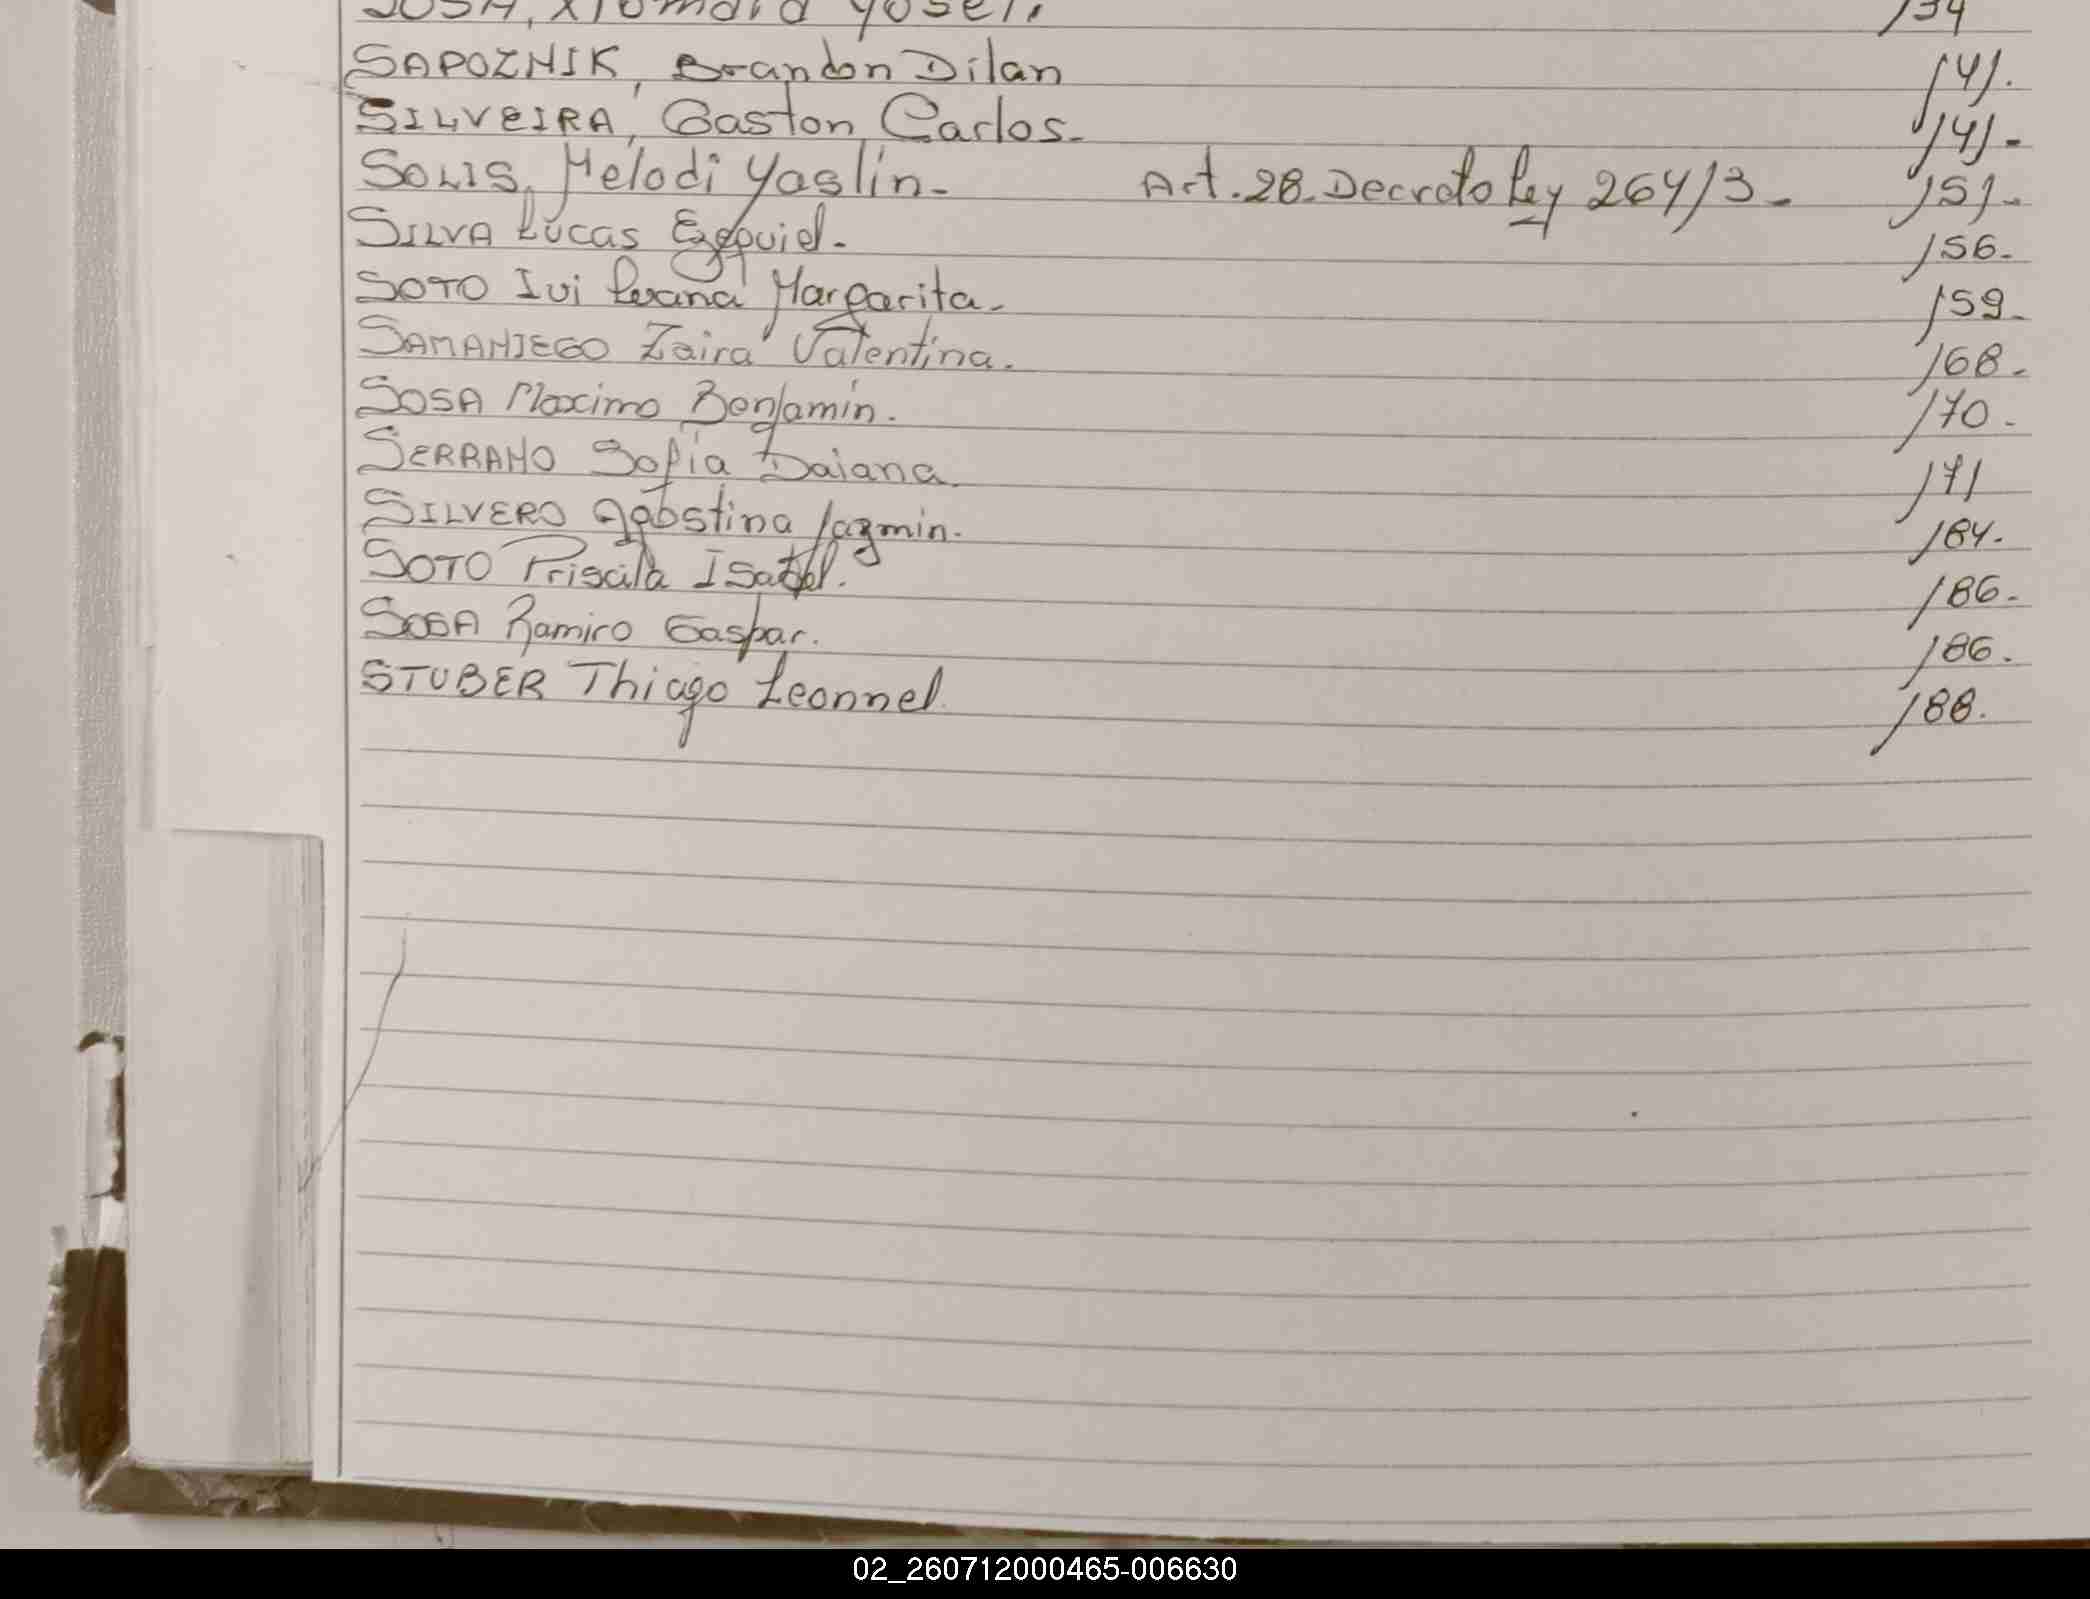 SOSA, Xiomara Yosel. 134
SAPOZNIK, Brandon Dilan 141.
SILVEIRA, Gaston Carlos. 141-
SOLIS, Melodi Yaslin- Art.28.Decreto Ley 264/3- 151-
SILVA Lucas Ezequiel. 156.
SOTO Ivi Margarita. 159-
SAMANIEGO Zaira Valentina. 168.
SOSA Maximo Benjamin. 170.
SERRANO Sofia Daiana 171
SILVERO Agostina Jazmin. 184.
SOTO Priscila Isabel. 186.
SOSA Ramiro Gaspar. 186.
STUBER Thiago Leonnel. 188.
02_260712000465-006630